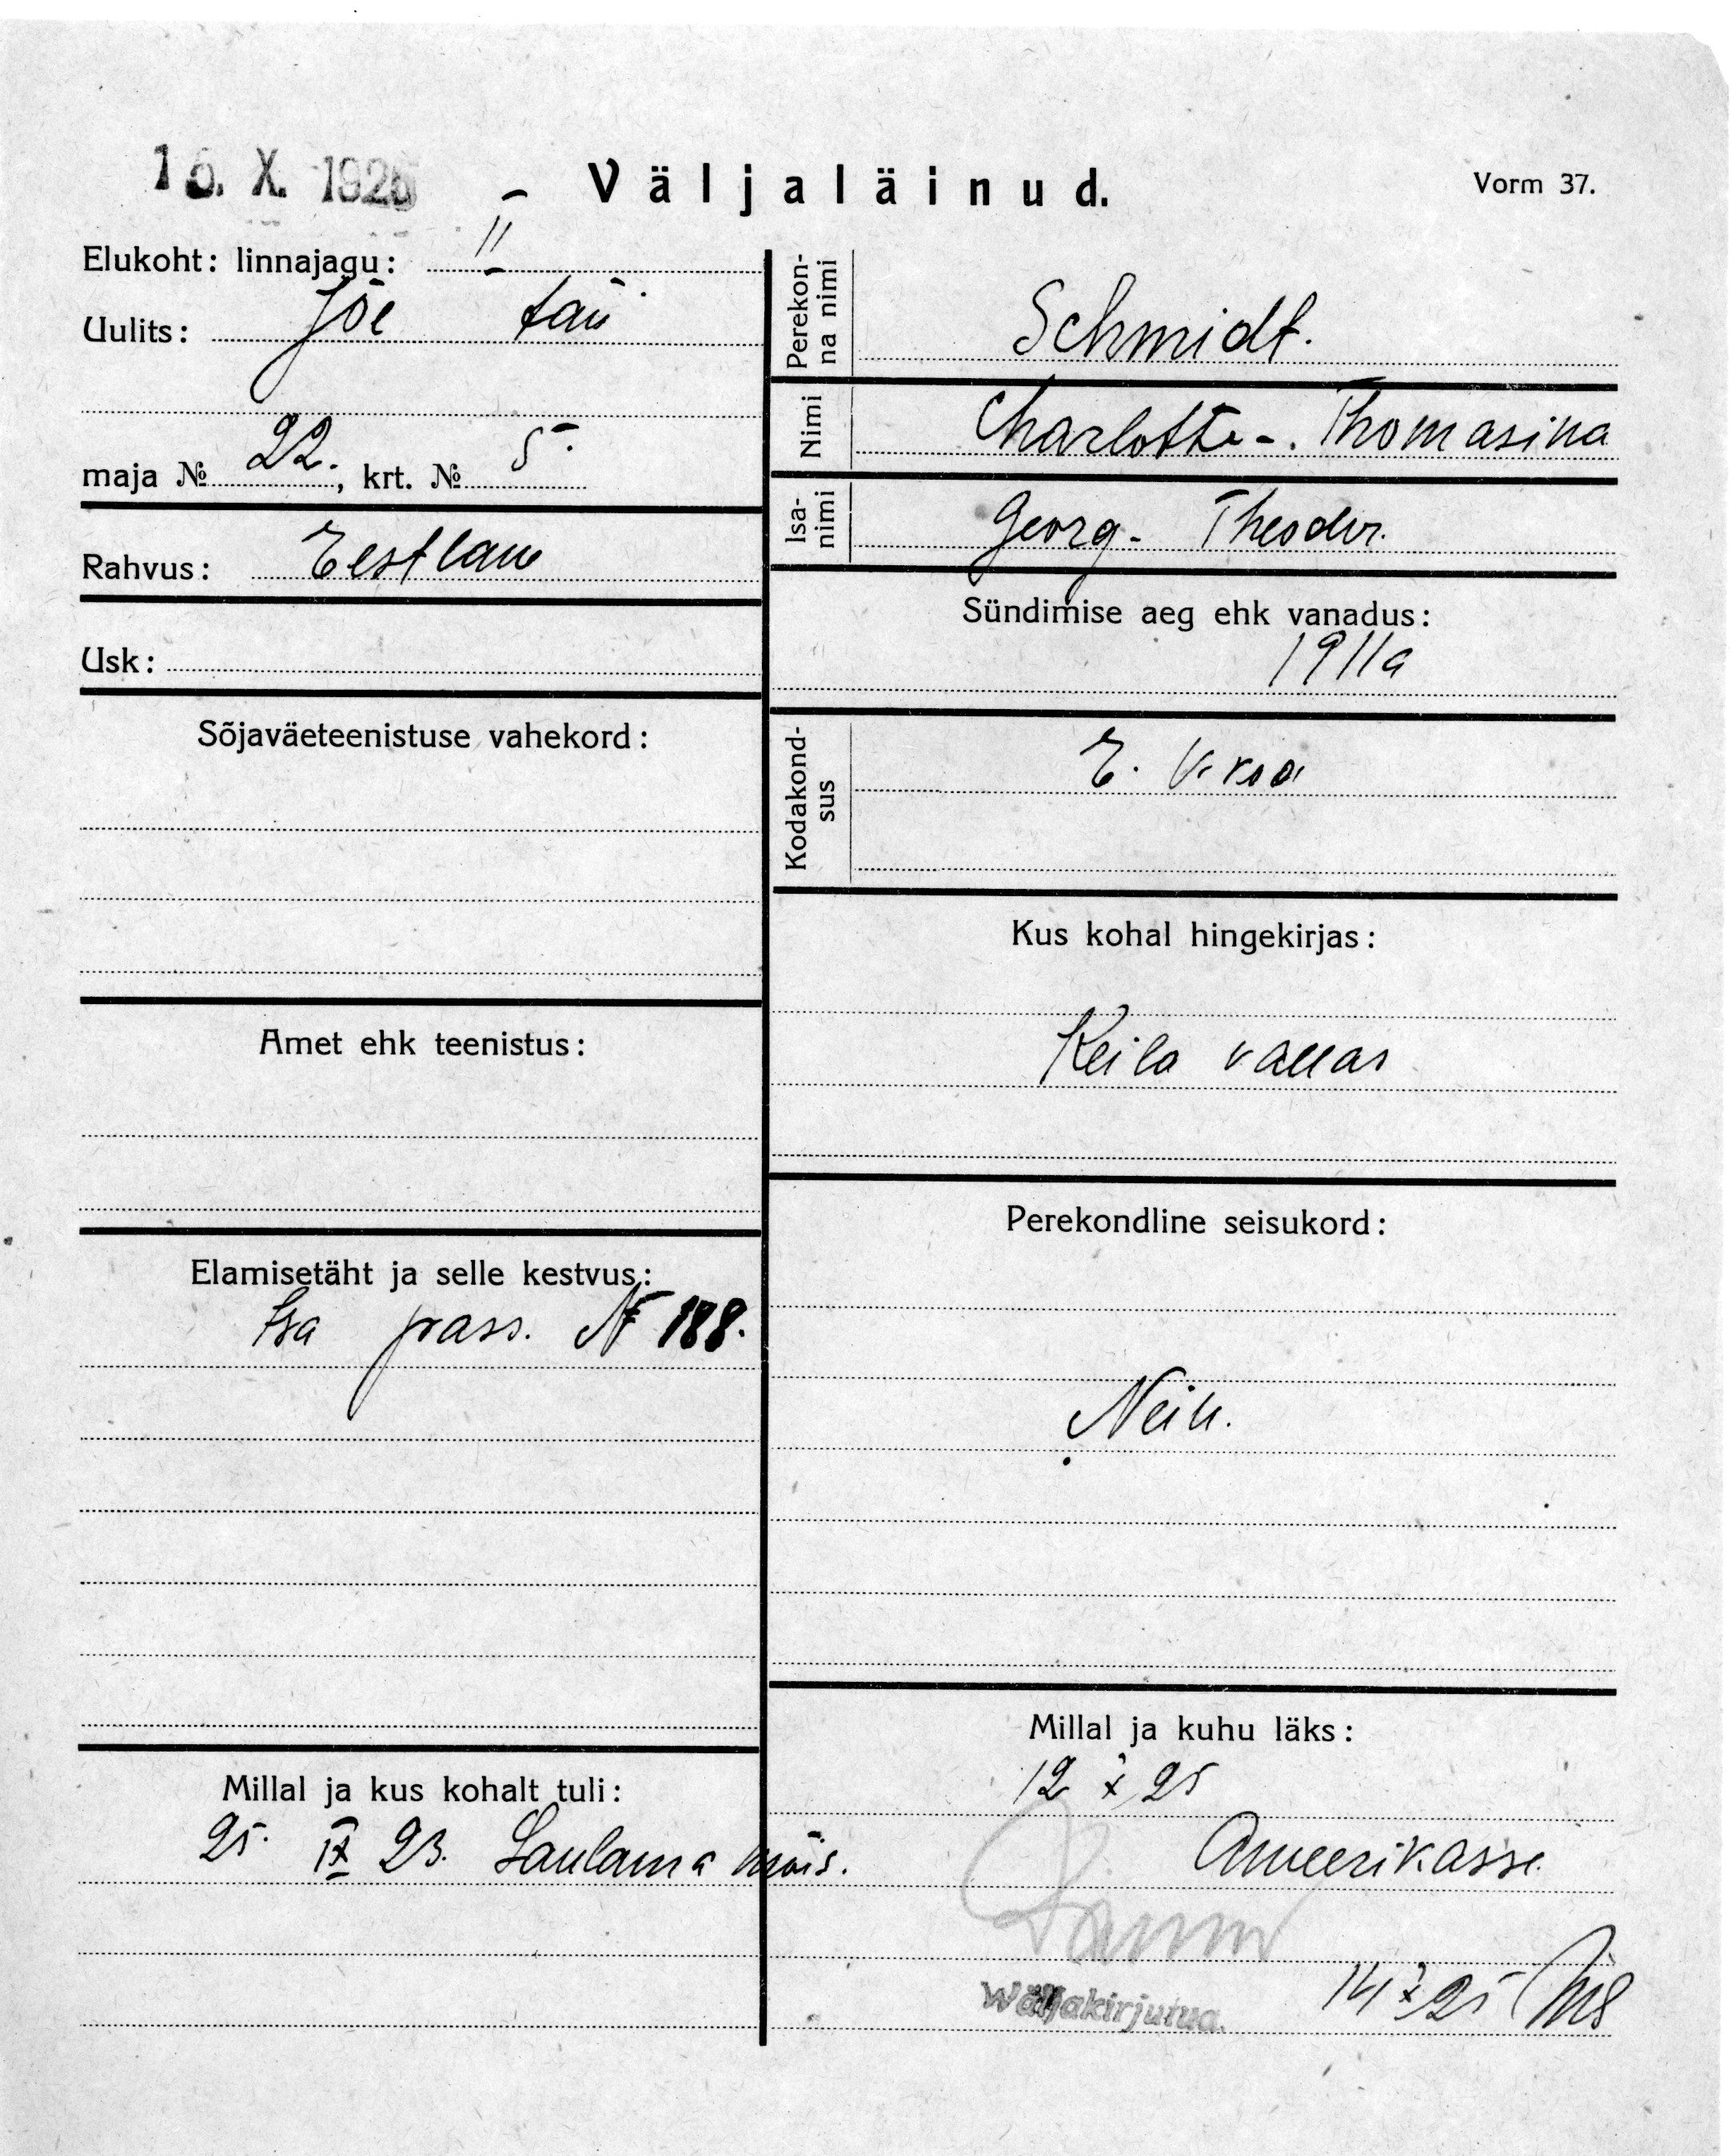 16. X. 1925
Väljaläinud.
Vorm 37.
Elukoht: linnajagu: II
Uulits: Jõe tän
maja № 22., krt. № 5.
Rahvus: Eestlane
Usk:
Sõjaväeteenistuse vahekord:
Amet ehk teenistus:
Elamisetäht ja selle kestvus:
Isa pass. № 188.
Millal ja kus kohalt tuli:
25. IX 23. Laulasma mõis.
Perekon-
na nimi
Schmidt.
Nimi
Charlotte-. Thomasina
Isa-
nimi
Georg- Theodor.
Sündimise aeg ehk vanadus:
1911a
Kodakond-
sus
E. V. koa
Kus kohal hingekirjas:
Keila vallas
Perekondline seisukord:
Millal ja kuhu läks:
12 X 25
Ameerikasse.
Wäljakirjutud.
14 X 25